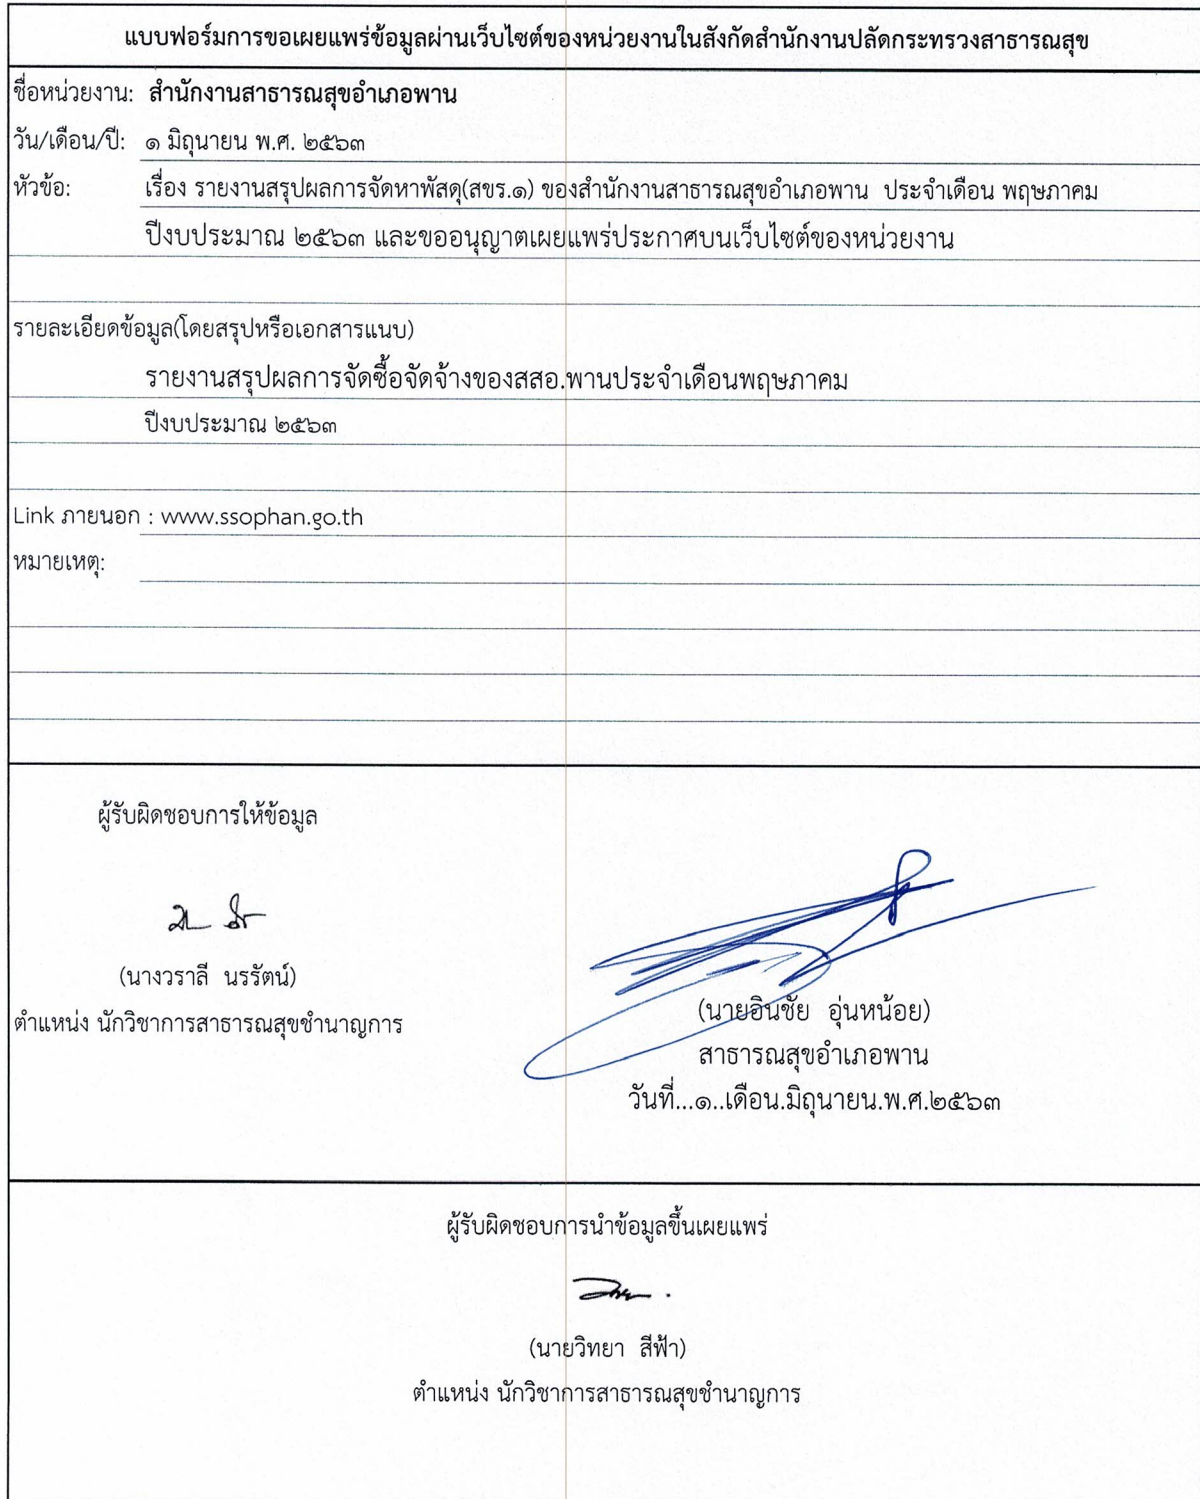 แบบฟอร์มการขอเผยแพร่ข้อมูลผ่านเว็บไซต์ของหน่วยงานในสังกัดสำนักงานปลัดกระทรวงสาธารณสุข
ชื่อหน่วยงาน: สำนักงานสาธารณสุขอำเภอพาน
วัน/เดือน/ปี: ๑ มิถุนายน พ.ศ. ๒๕๖๓
หัวข้อ: เรื่อง รายงานสรุปผลการจัดหาพัสดุ(สขร.๑) ของสำนักงานสาธารณสุขอำเภอพาน ประจำเดือน พฤษภาคม
ปีงบประมาณ ๒๕๖๓ และขออนุญาตเผยแพร่ประกาศบนเว็บไซต์ของหน่วยงาน
รายละเอียดข้อมูล(โดยสรุปหรือเอกสารแนบ)
รายงานสรุปผลการจัดซื้อจัดจ้างของสสอ.พานประจำเดือนพฤษภาคม
ปีงบประมาณ ๒๕๖๓
Link ภายนอก : www.ssophan.go.th
หมายเหตุ:
ผู้รับผิดชอบการให้ข้อมูล
(นางวราลี นรรัตน์)
ตำแหน่ง นักวิชาการสาธารณสุขชำนาญการ
(นายอินชัย อุ่นหน้อย)
สาธารณสุขอำเภอพาน
วันที่...๑..เดือน.มิถุนายน.พ.ศ.๒๕๖๓
ผู้รับผิดชอบการนำข้อมูลขึ้นเผยแพร่
(นายวิทยา สีฟ้า)
ตำแหน่ง นักวิชาการสาธารณสุขชำนาญการ